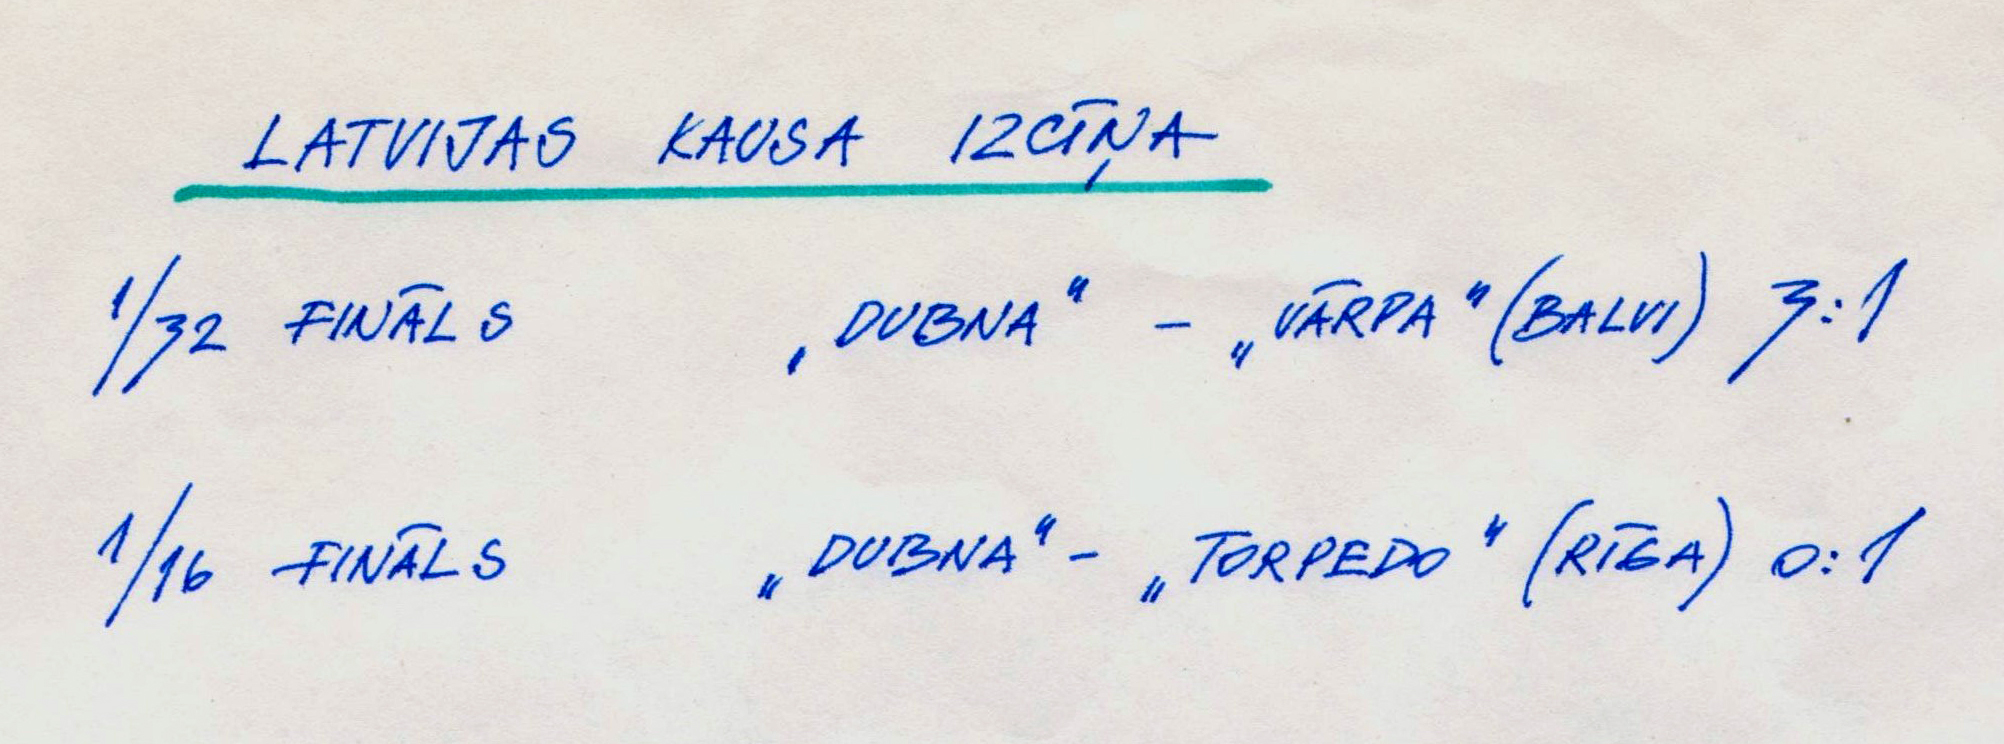 LATVIJAS KAUSA IZCĪŅA
1/32 FINĀLS „DUBNA" – „VĀRPA" (BALVI) 3:1
1/16 FINĀLS „DUBNA" – „TORPEDO" (RĪGA) 0:1